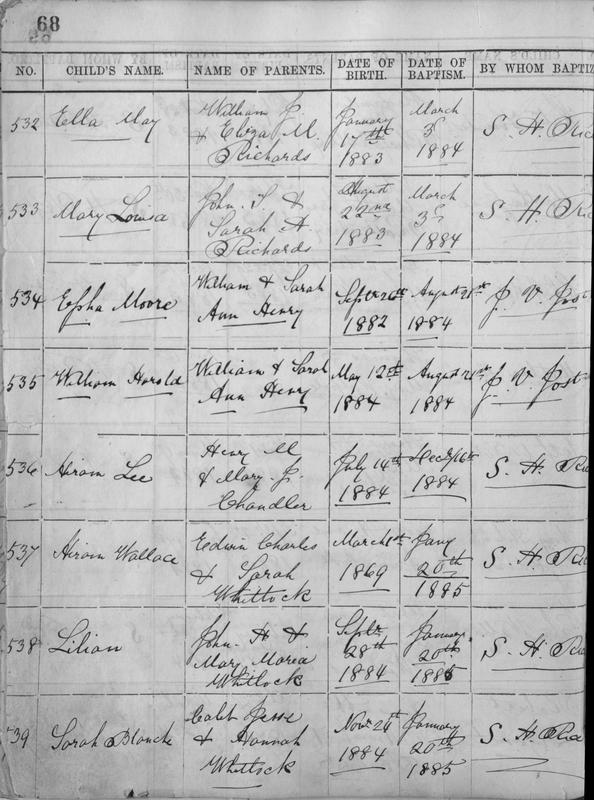 68
NO. CHILD'S NAME. NAME OF PARENTS. DATE OF BIRTH. DATE OF BAPTISM. BY WHOM BAPTIZ
532 Ella May William J. & Eliza M. Richards January 17th 1883 March 3d 1884 S. H. Ric
533 Mary Louisa John. S & Sarah A Richards August 22nd 1883 March 3d 1884 S. H. Ric
534 Epha Moore William & Sarah Ann Henry Septr 26th 1882 August 21st 1884 J. V. Jost
535 William Harold William & Sarah Ann Henry May 12th 1884 August 21st 1884 J. V. Jost
536 Hiram Lee Henry M & Mary J. Chandler July 14th 1884 Decr 16th 1884 S. H. Ric
537 Hiram Wallace Edwin Charles & Sarah Whitlock March 1st 1869 Jany 20th 1885 S. H. Ric
538 Lilian John. H & Mary Maria Whitlock Septr 28th 1884 January 20th 1885 S. H. Ric
539 Sarah Blanch Caleb Jesse & Hannah Whitlock Novr 24th 1884 January 20th 1885 S. H. Ric